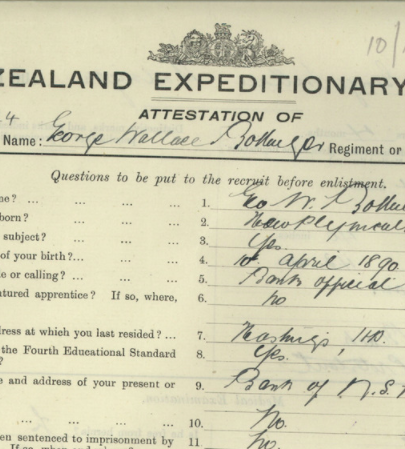 10/
ZEALAND EXPEDITIONARY
ATTESTATION OF
4
Name: George Wallace Bollinger Regiment or
Questions to be put to the recruit before enlistment.
me? ... ... ... 1. Geo W. Bollin
born? ... ... ... 2. New Plymouth
subject? ... ... ... 3. Yes
of your birth?... ... ... 4. April 1890
e or calling? ... ... ... 5. Bank official
atured apprentice? If so, where, 6. no
dress at which you last resided? ... 7. Hastings, H.B.
the Fourth Educational Standard 8. Yes.
?
e and address of your present or 9. Bank of N.S.
... ... ... ... 10. No.
en sentenced to imprisonment by 11 no.
If so, when and